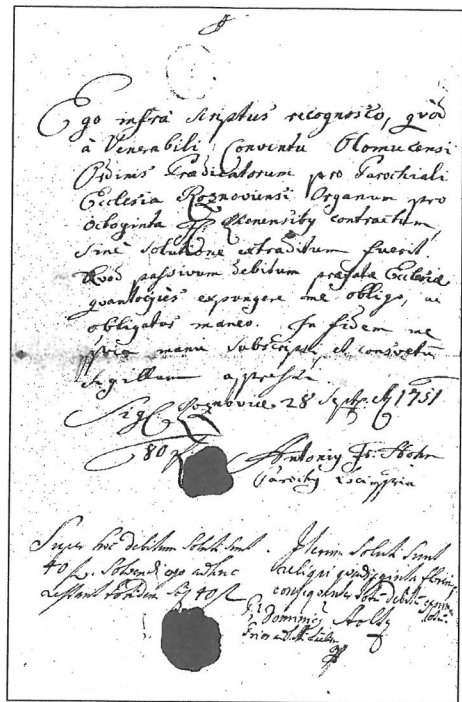 Ego infra scriptus recognosco, quòd
à Venerabili Conventu Olomucensi
Ordinis Praedicatorum pro Parochiali
Ecclesia Roznoviensi Organum pro
octoginta Rhenensibus contractum,
sine solutione extraditum fuerit.
Quod passivum debitum praefatae Ecclesiae
quantocyus expungere me obligo, ac
obligatus maneo. In fidem me
pria manu subscripsi, et consvetum
Sigillum appressi.
Roznoviae 28 Septembris 1751
Sig.
80 f
Antonius
Parochus
Super hoc debitum soluti sunt
40 f. Solvendi ergo adhuc
restant 40 f
Iterum soluti sunt
reliqui quadraginta floreni
consequenter totum debitum
Dominicus
Prior